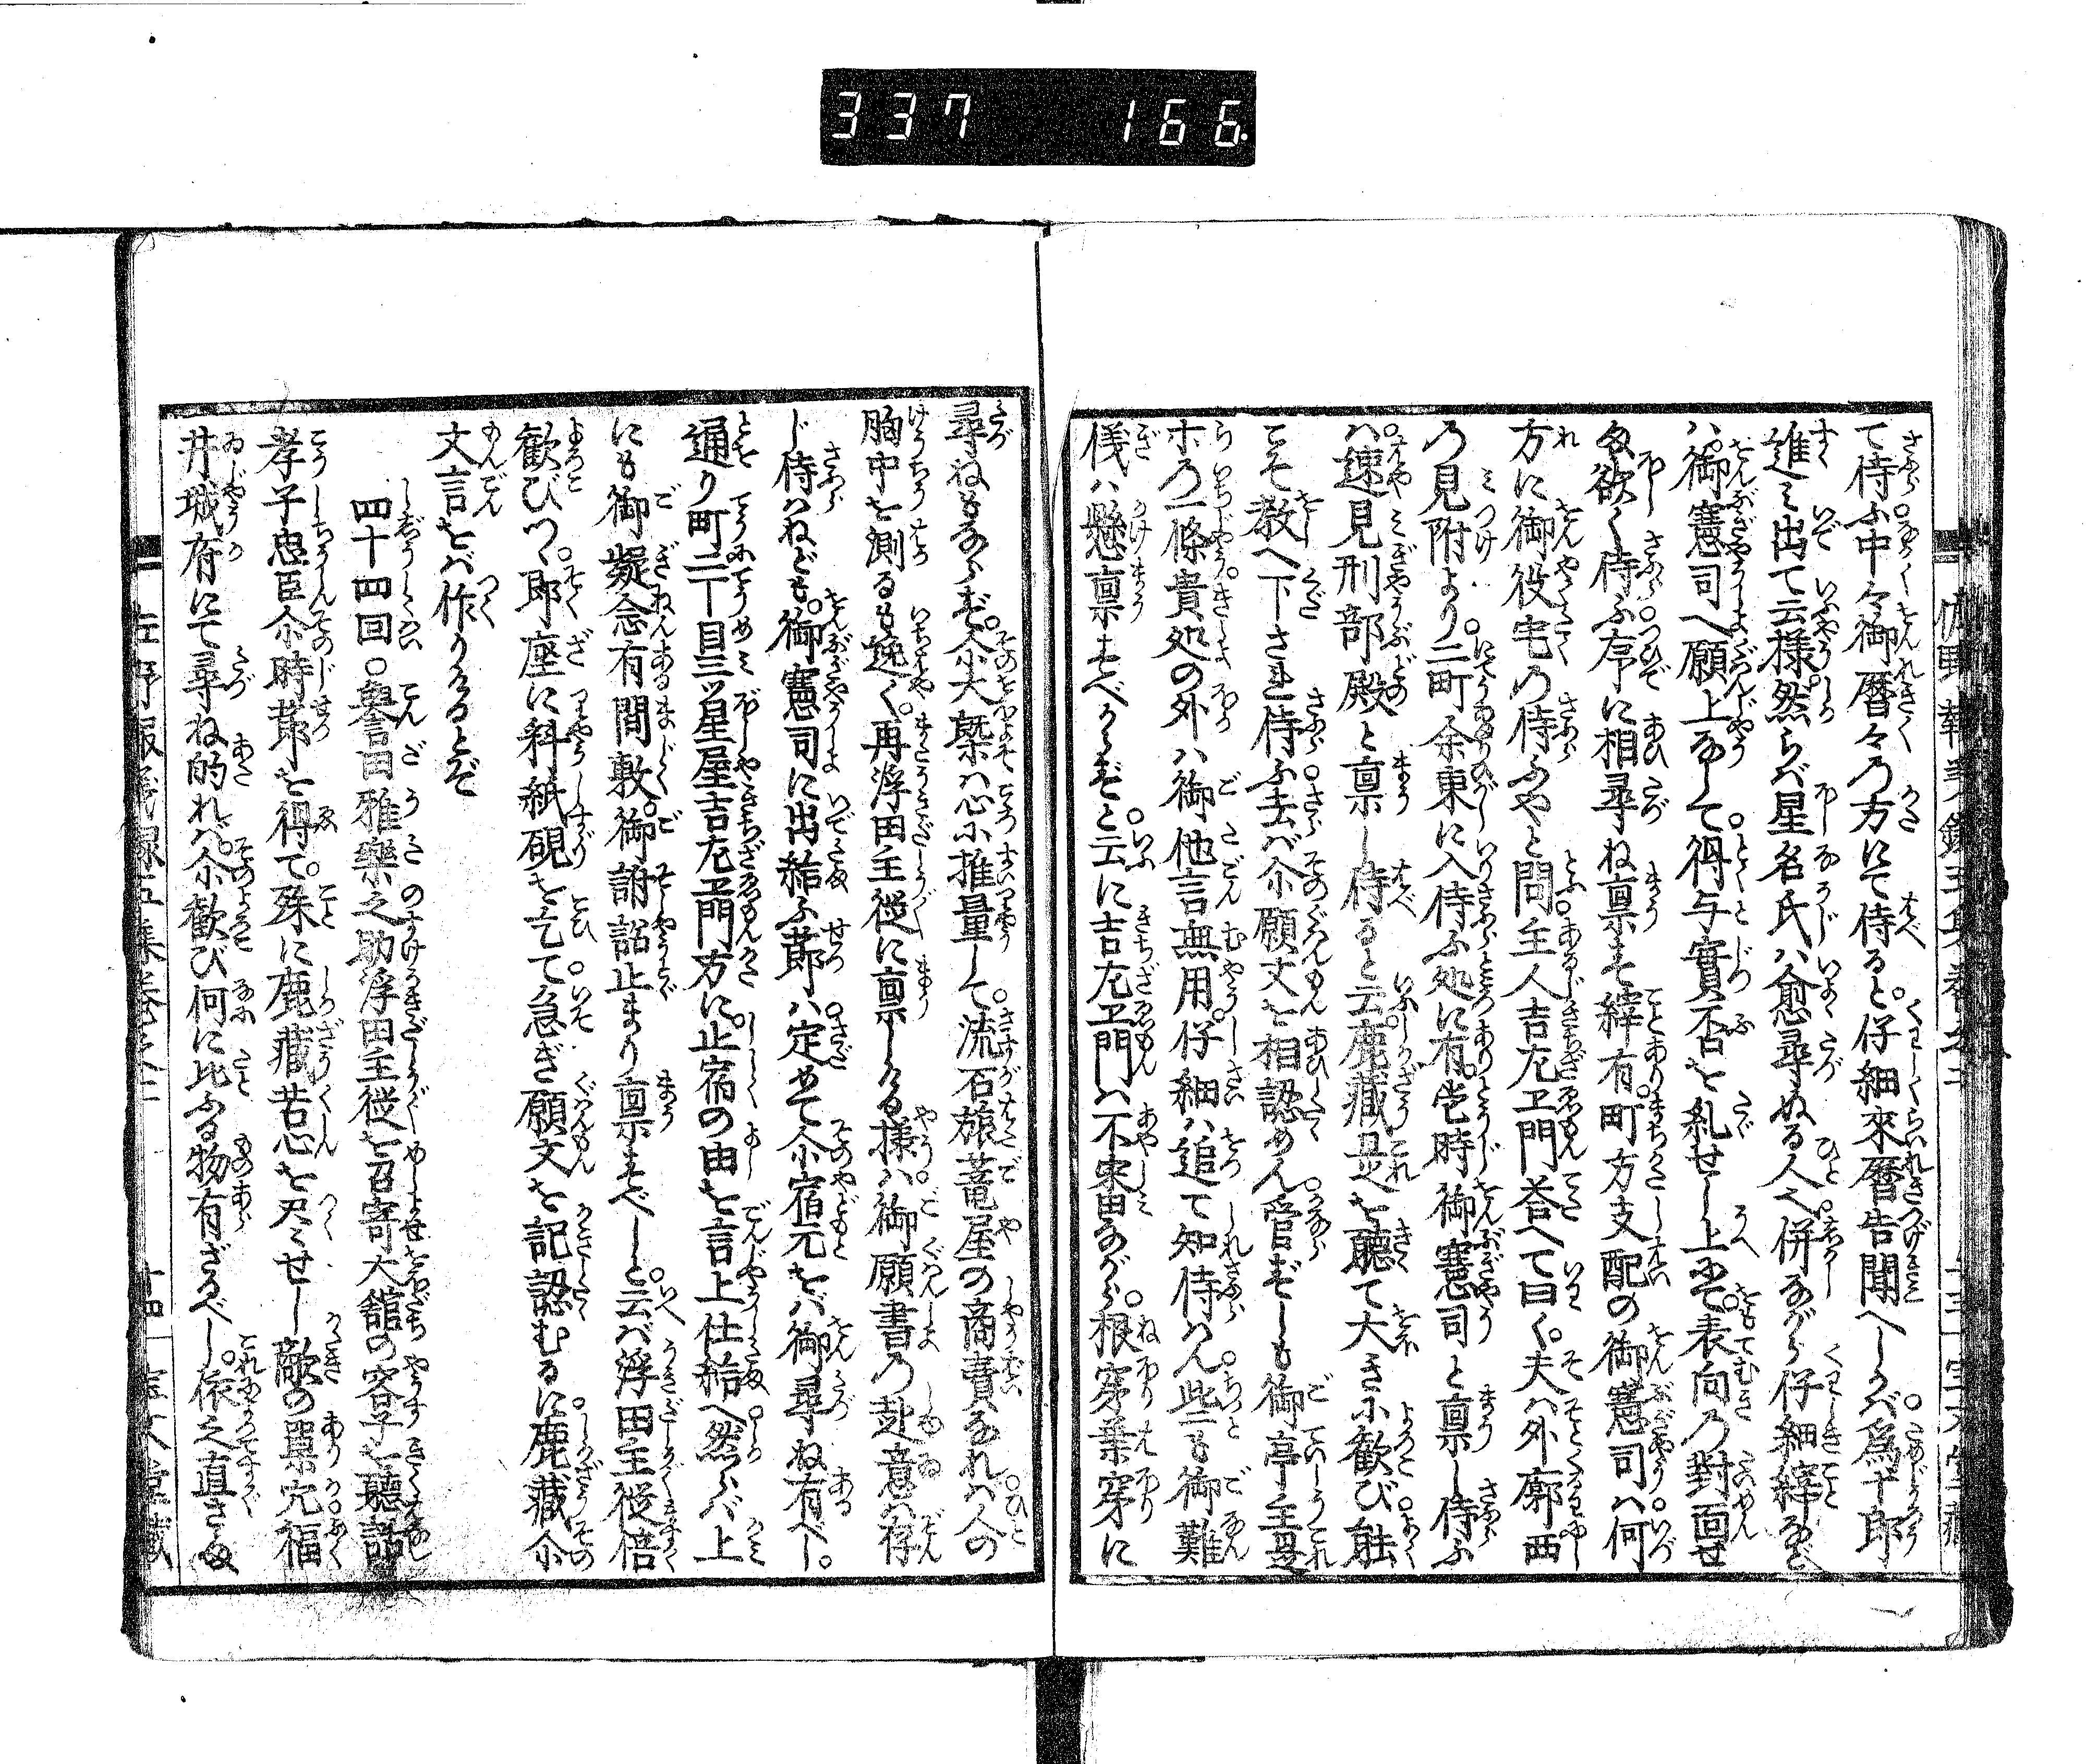 337 166
て侍ふ中々御暦々乃方にて侍ると。仔細來暦告聞へしかバ爲十郎
進ミ出て云様。然らバ星名氏ハ愈尋ぬる人也。併ながら仔細繹なれ
バ。御憲司へ願上なして。得与實否を糺せし上にて。表向乃對面せ
ま欲く侍ふ。序に相尋ね禀す繹有。町方支配の御憲司ハ何
方に御役宅乃侍ふやと問。主人吉左エ門荅へて曰く。夫ハ外廓西
乃見附より。二町余東に入侍ふ処に有。當時御憲司と禀し侍ふ
ハ速見刑部殿と禀し侍ると云。鹿藏是を聽て大きに歓び。能
こそ教へ下され侍ふ。去バ尒願文を相認めん。管ずしも御亭主是
ホ乃一條貴処の外ハ御他言無用。仔細ハ追て知侍ハん。些も御難
儀ハ懸禀すべからずと。云に吉左エ門ハ不審ながら。根穿葉穿に
尋ねもならず。尒大槩ハ心に推量して。流石旅篭屋の商賣なれバ人の
胸中を測るも逸く。再浮田主従に禀しける様ハ。御願書乃赴意ハ存
じ侍ハねども。御憲司に出給ふ節ハ。定めて尒宿元をバ御尋ね有べし。
通り町二丁目三ツ星屋吉左エ門方に。止宿の由を言上仕給へ。然らバ上
にも御疑念有間敷。御謝詔止まり禀すべしと。云バ浮田主従倍
歓びつゝ。即座に料紙硯を乞て。急ぎ願文を記認むるに。鹿藏尒
文言をバ作りけるとぞ
四十四回。譽田雅樂之助浮田主従を召寄大舘の容子を聽話
孝子忠臣尒時節を得て。殊に鹿藏苦心を尽せし敵の巣穴福
井城府にて尋ね的れバ。尒歓び何に比ふる物有ざるべし。依之直さま